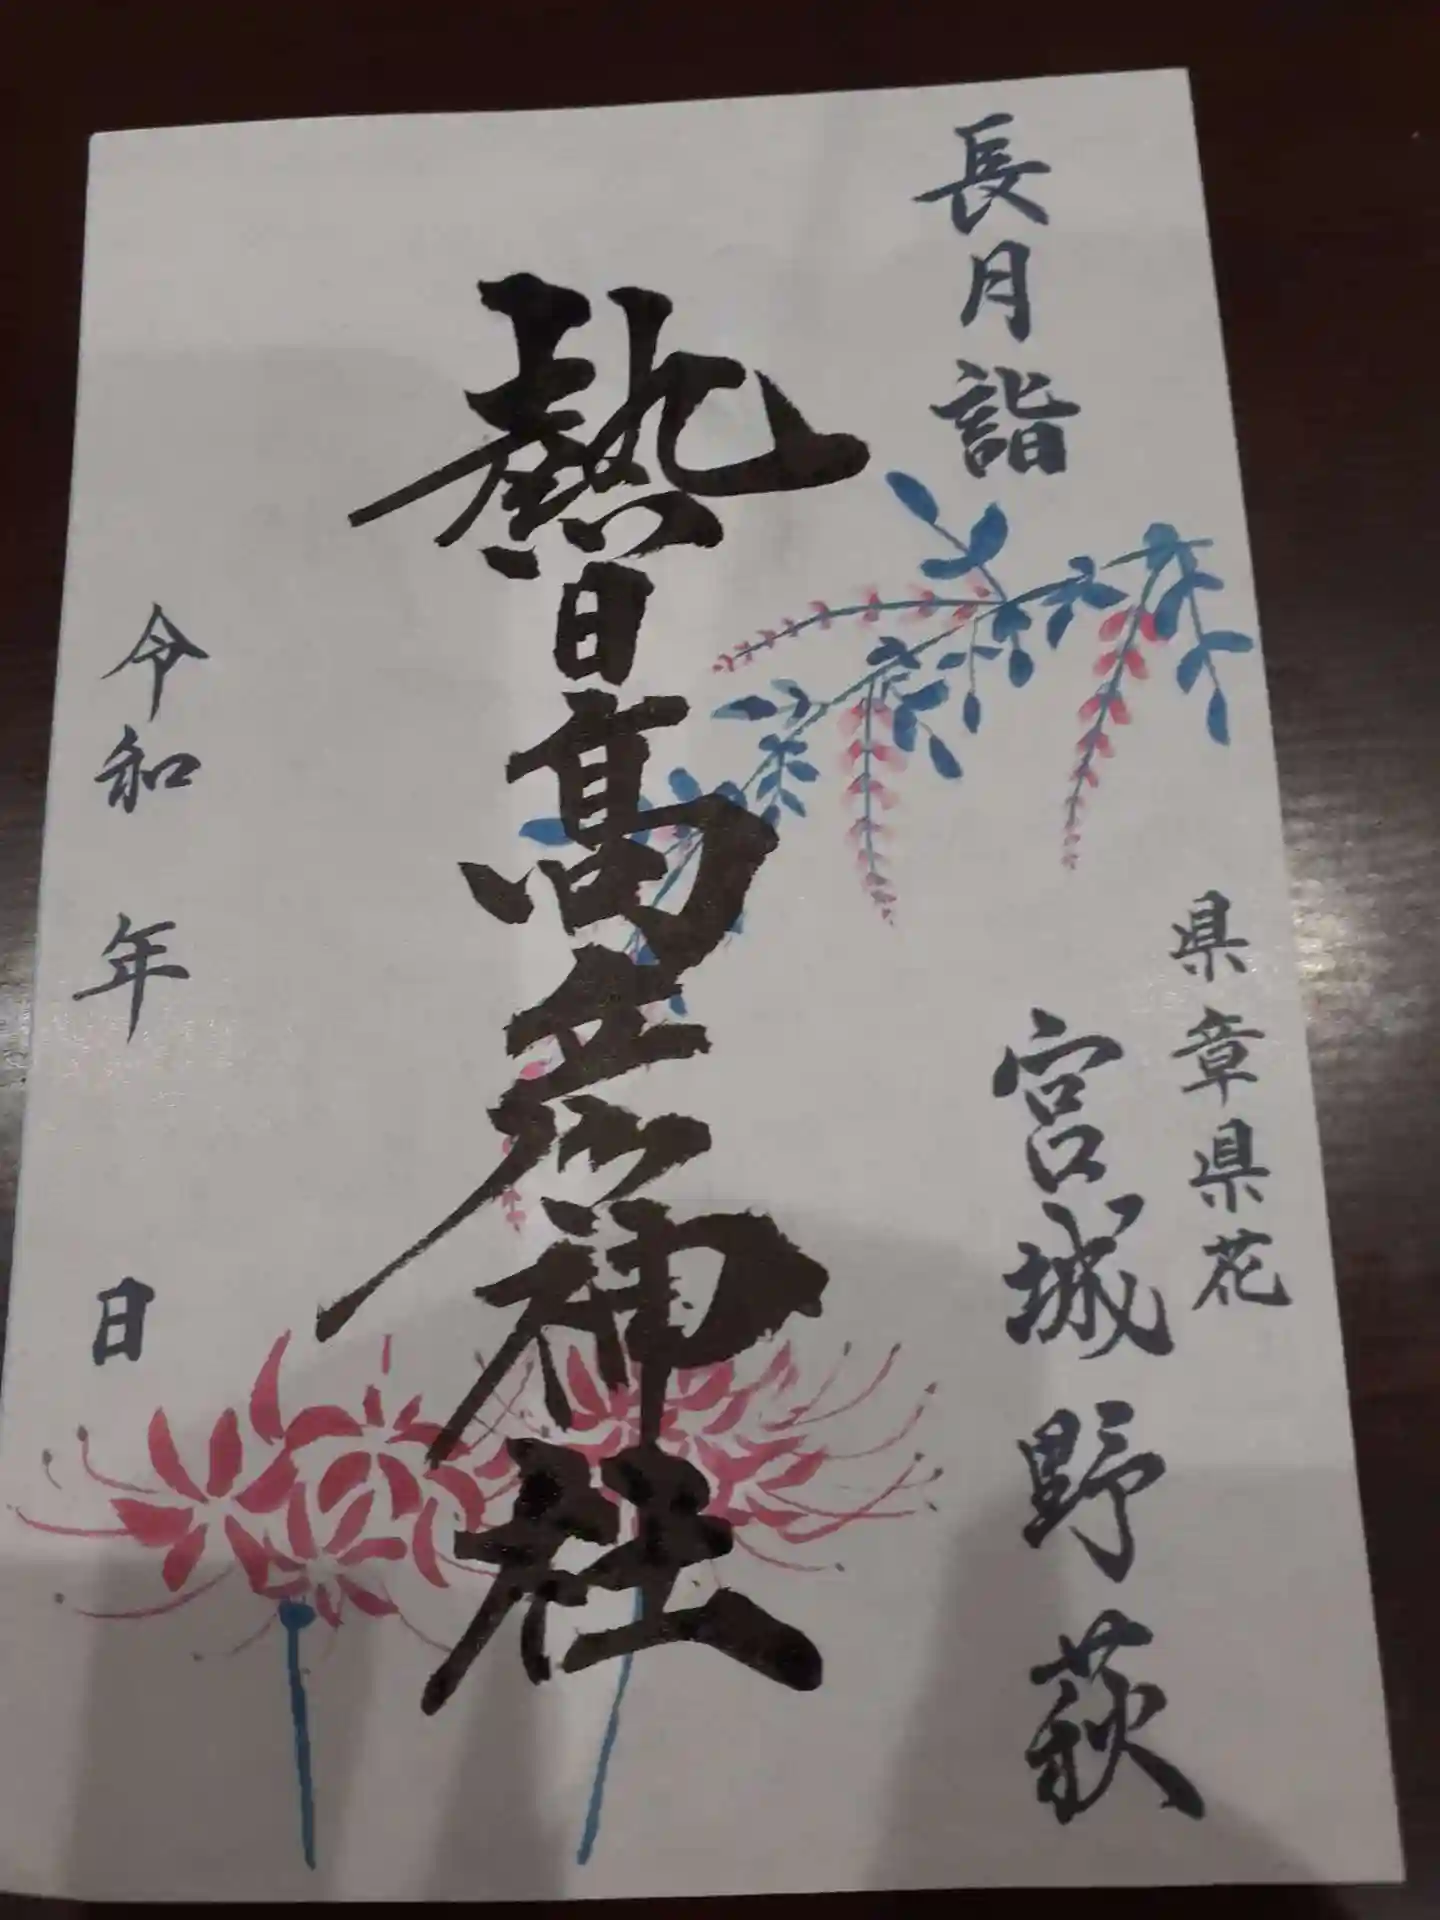 長月詣
県章県花
宮城野萩
熱日高彦神社
令和 年 日